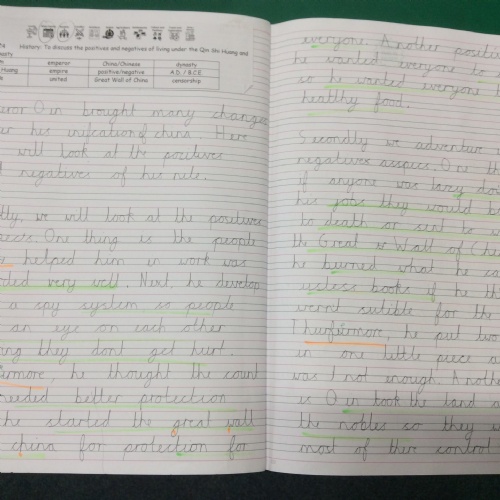 History: To discuss the positives and negatives of living under the Qin Shi Huang and
emperor China/Chinese dynasty
Huang empire positive/negative A.D. / B.C.E
united Great Wall of China censorship
Qin brought many changes
his unification of china. Here
will look at the positives
negatives of his rule.
we will look at the positives
One thing is the people
helped him in work was
very well. Next, he develop
a spy system so people
an eye on each other
they dont get hurt.
he thought the count
needed better protection
he started the great wall
china for protection for
everyone. Another positive
he wanted everyone to
so he wanted everyone
healthy food.
Secondly we adventure
negatives aspecs. One th
if anyone was lazy do
his jobs they would b
to death or sent to
the Great Wall of Che
he burned what he co
useless books if he th
wernt sutible for the
Thurfurmore, he put two
in one little piece
was not enough. Anoth
is Qin took the land
the nobles so they
most of ther control